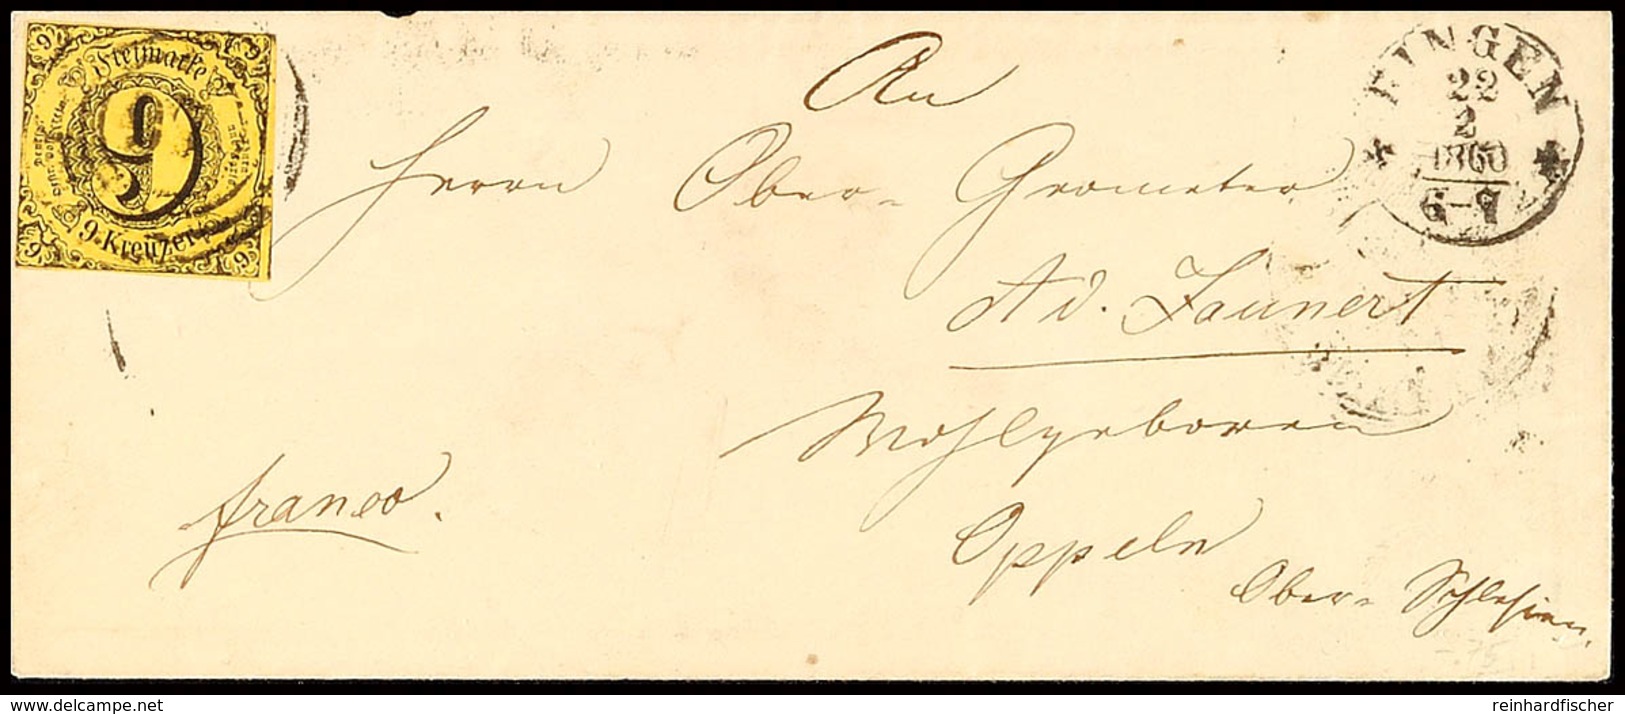 Freimarke
9
9 Kreuzer
9
9
9
9
EINGEN
22
2
1860
6-9
An
Herrn Ober- Geometer
Ad. Jaunert
Wohlgeboren
Oppeln
Ober- Schlesien.
franco.
delcampe.net
reinhardfischer